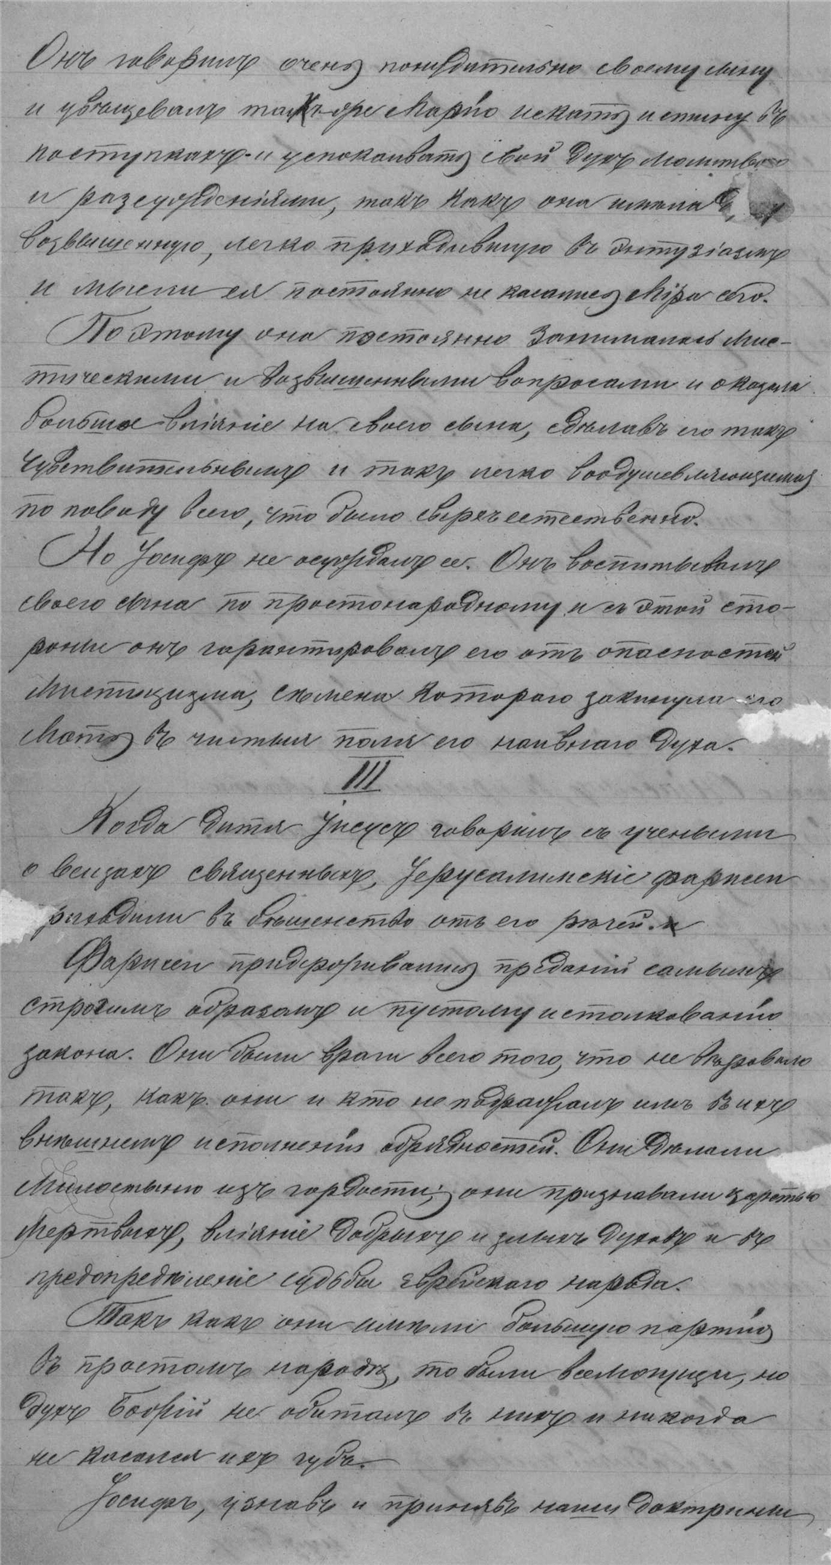 Онъ говорилъ очень понудительно своему сыну
и увѣщевалъ также Марію искать истину въ
поступкахъ и успокоивать свой духъ молитвою
и разсужденіями, такъ какъ она имѣла
возвышенную, легко приходившую въ энтузіазмъ
и мысли ея постоянно не касались Міра сего.
Поэтому она постоянно занималась мис-
тическими и возвышенными вопросами и оказала
большое вліяніе на своего сына, сдѣлавъ его такъ
чувствительнымъ и такъ легко воодушевляющимся
по поводу всего, что было сверхъестественно.
Но Іосифъ не осуждалъ ее. Онъ воспитывалъ
своего сына по простонародному и съ этой сто-
роны онъ гарантировалъ его отъ опасностей
Мистицизма, сѣмена котораго закинула его
Мать въ чистыя поля его наивнаго духа.
III
Когда дитя Іисусъ говорилъ съ учеными
о вещахъ священныхъ, Іерусалимскіе фарисеи
приходили въ бѣшенство отъ его рѣчей.
Фарисеи придерживались преданій самымъ
строгимъ образомъ и пустому истолкованію
закона. Они были враги всего того, что не вѣровало
такъ, какъ они и кто не подражалъ имъ въ ихъ
внѣшнемъ исполненіи обрядностей. Они дѣлали
Милостыню изъ гордости; они признавали царство
Мертвыхъ, вліяніе добрыхъ и злыхъ духовъ и въ
предопредѣленіе судьбы Еврейскаго народа.
Такъ какъ они имѣли большую партію
въ простомъ народѣ, то были всемогущи, но
духъ Божій не обиталъ въ нихъ и никогда
не касался ихъ губъ.
Іосифъ, узнавъ и принявъ наши доктрины